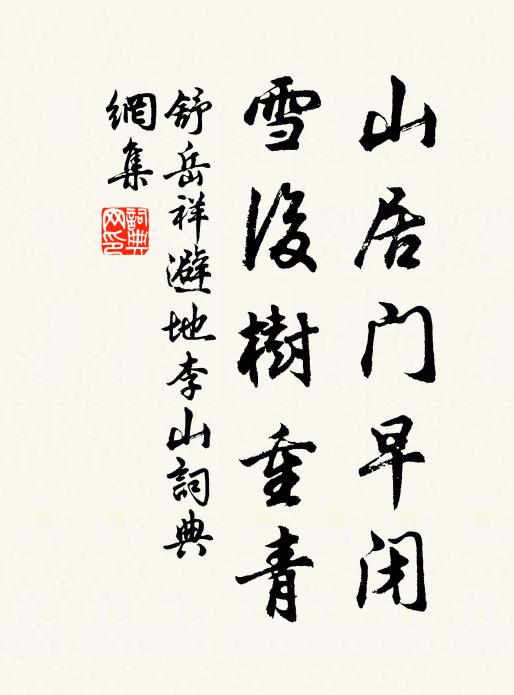 山居门早闭
雪後樹重青
舒岳祥避地李山詞典
網集
詞典网印